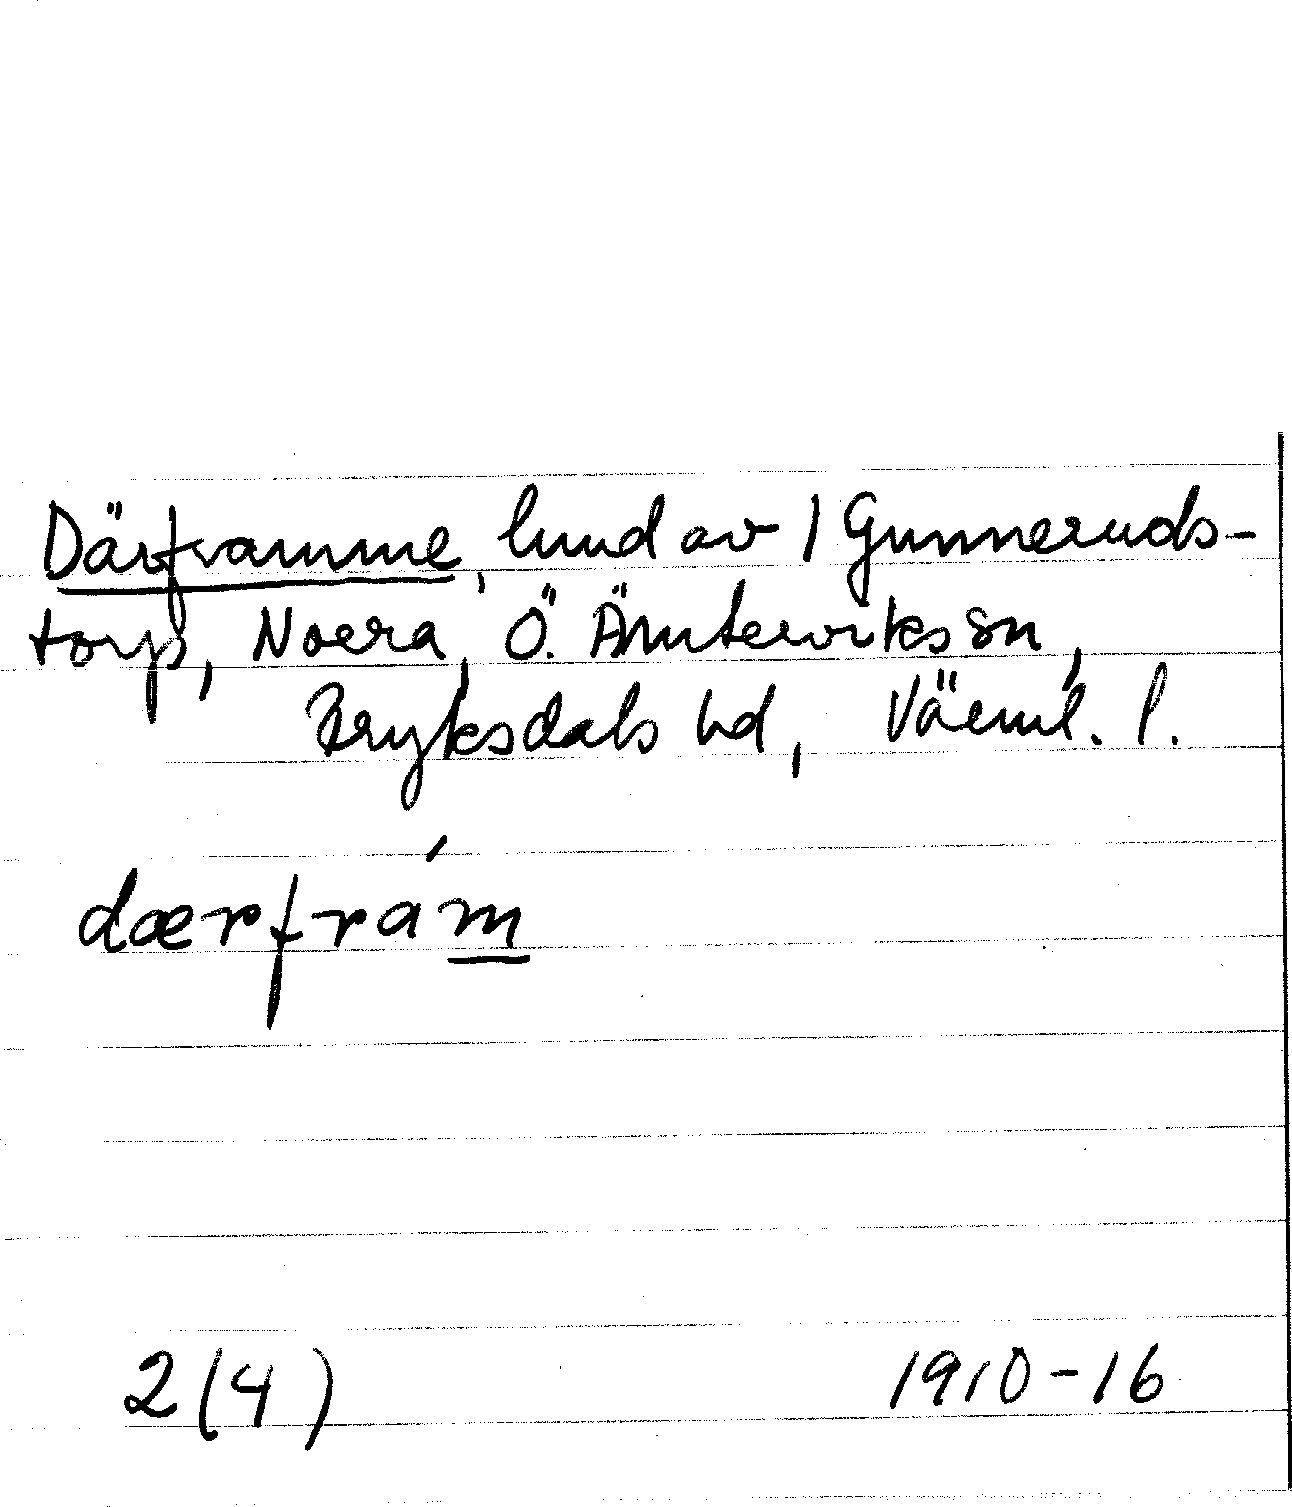 Därframme, lund av 1 Gunneruds-
torp, Norra, Ö. Ämterviks sn,
Fryksdals hd, Värml. l.
dærfrám
2(4) 1910-16